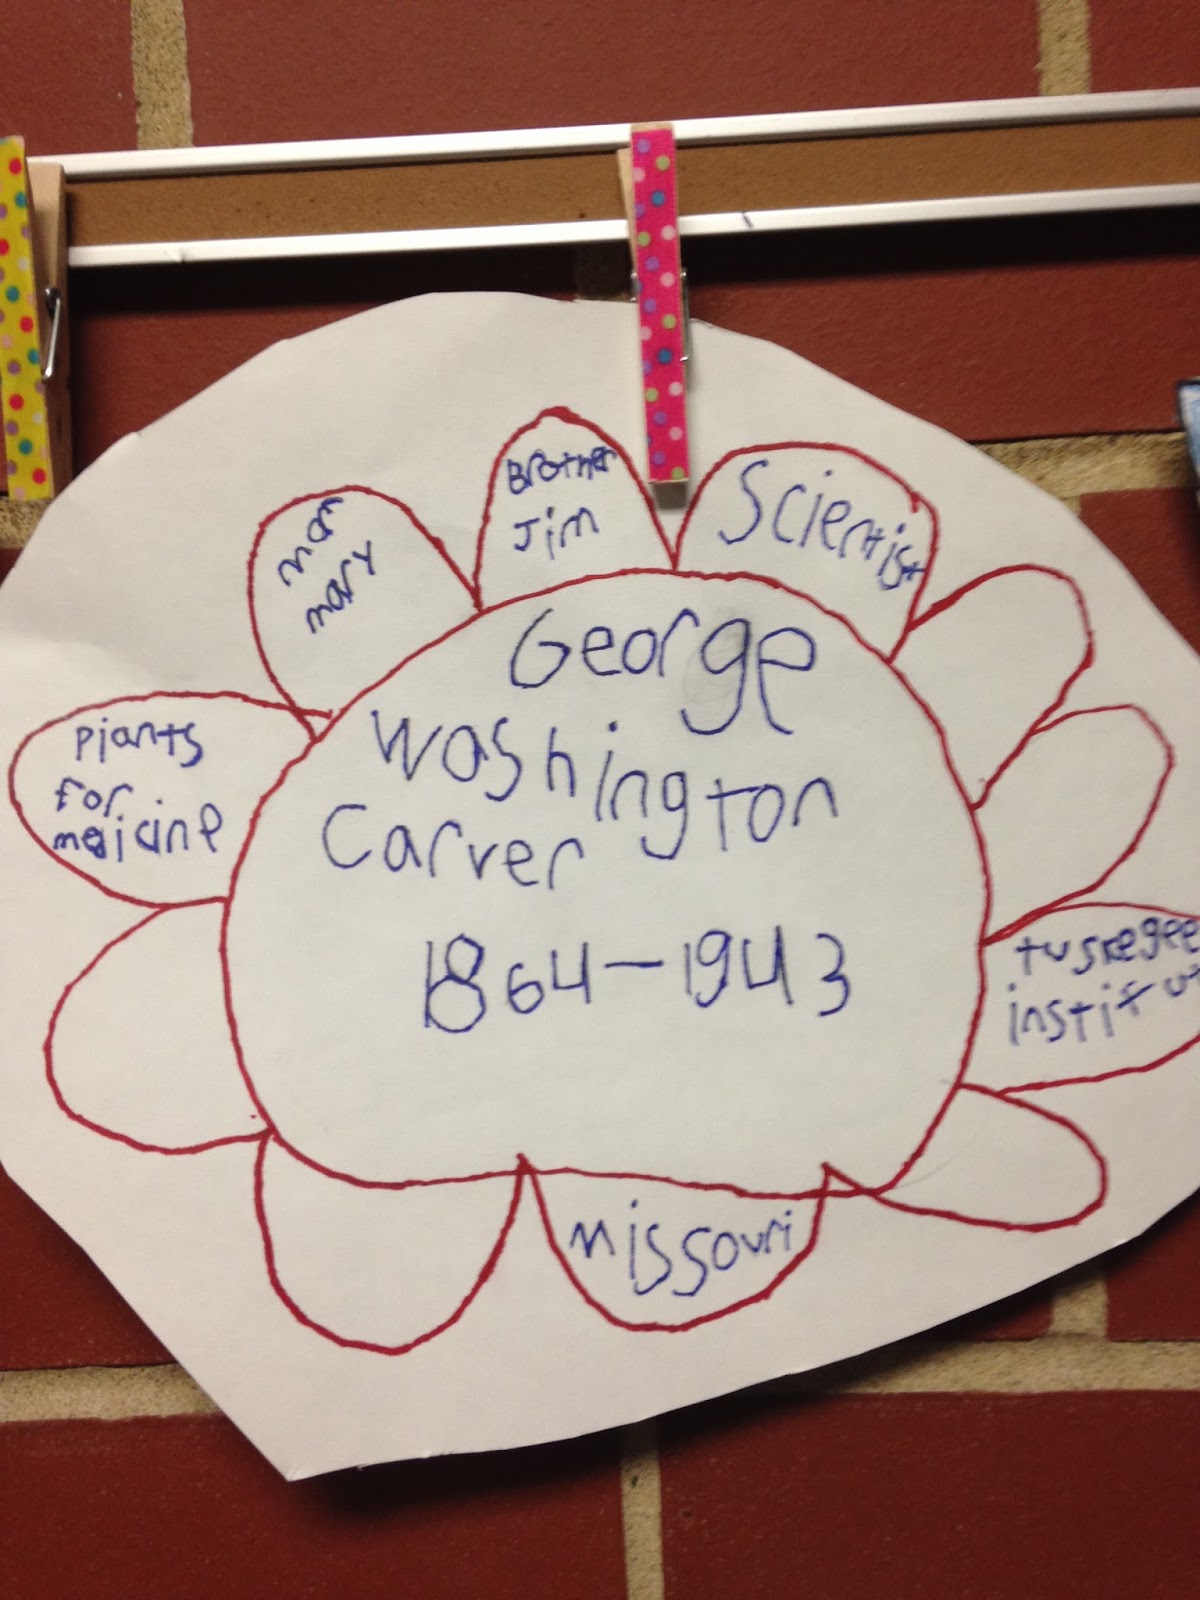 George
Washington
Carver
1864-1943
Brother
Jim
Scientist
mary
Plants
for
medicine
tuskegee
institut
missouri